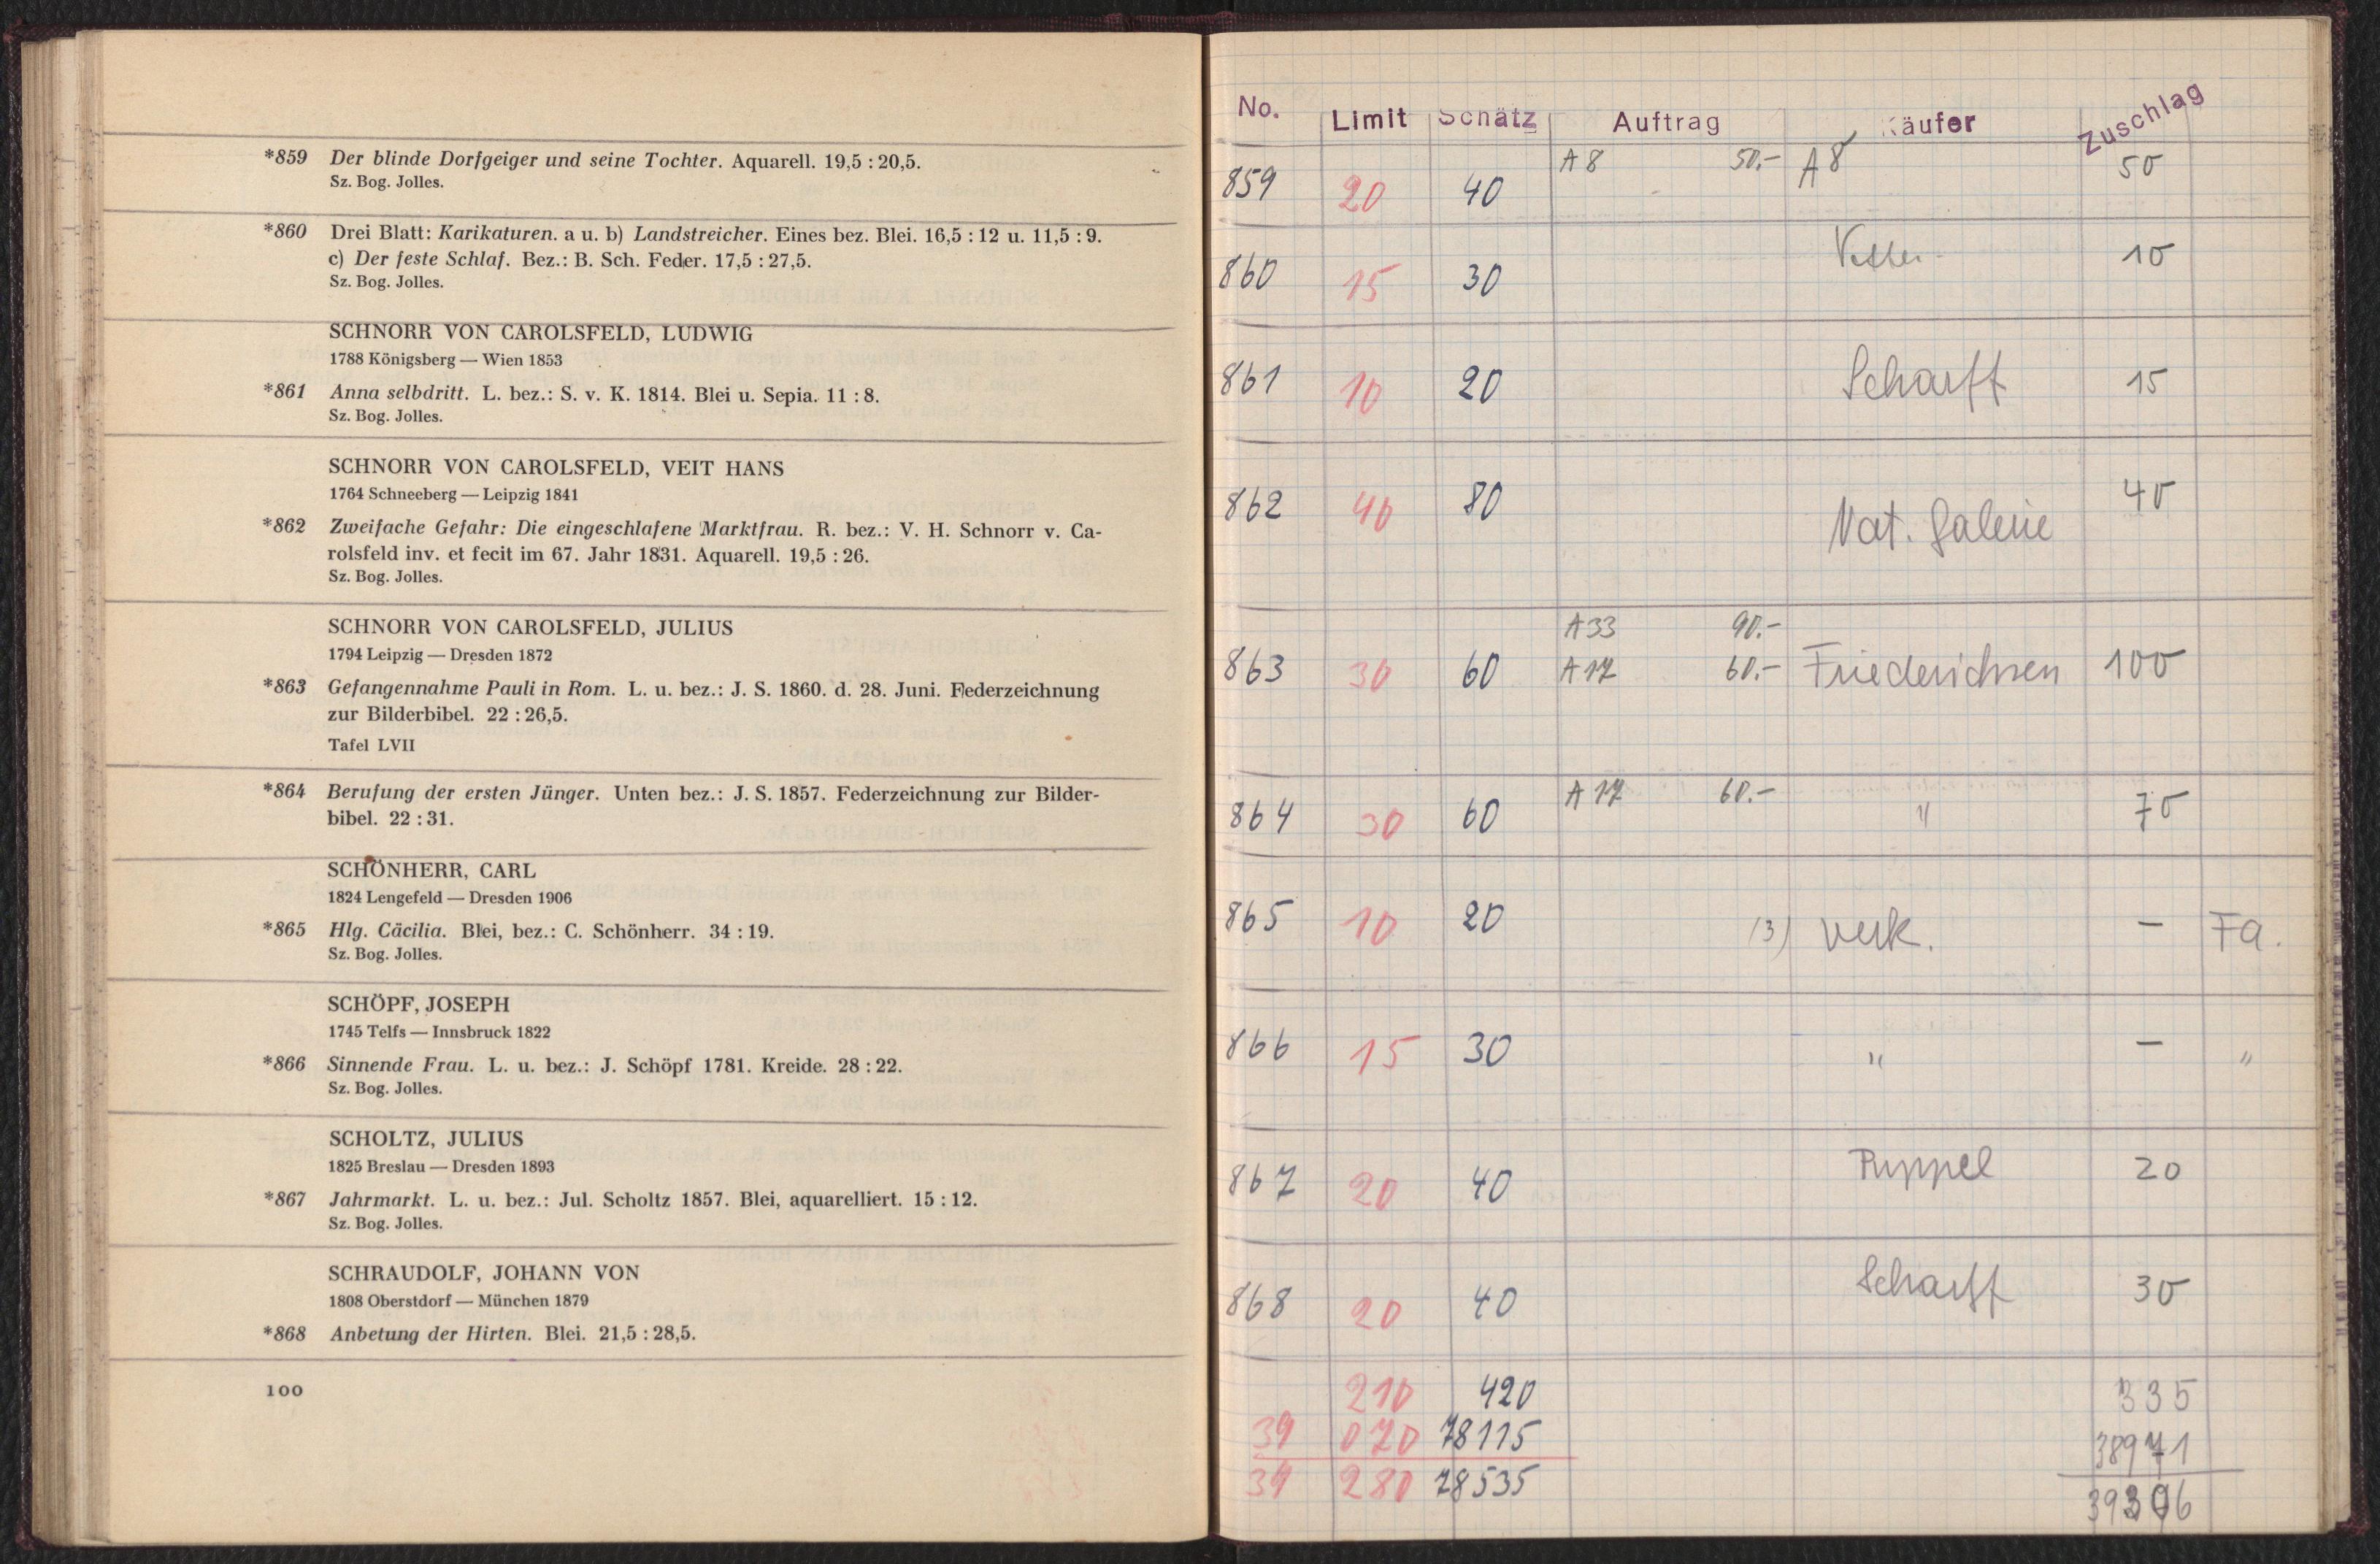 *859 Der blinde Dorfgeiger und seine Tochter. Aquarell. 19,5 : 20,5.
Sz. Bog. Jolles.
*860 Drei Blatt: Karikaturen. a u. b) Landstreicher. Eines bez. Blei. 16,5 : 12 u. 11,5 : 9.
c) Der feste Schlaf. Bez.: B. Sch. Feder. 17,5 : 27,5.
Sz. Bog. Jolles.
SCHNORR VON CAROLSFELD, LUDWIG
1788 Königsberg — Wien 1853
*861 Anna selbdritt. L. bez.: S. v. K. 1814. Blei u. Sepia. 11 : 8.
Sz. Bog. Jolles.
SCHNORR VON CAROLSFELD, VEIT HANS
1764 Schneeberg — Leipzig 1841
*862 Zweifache Gefahr: Die eingeschlafene Marktfrau. R. bez.: V. H. Schnorr v. Ca-
rolsfeld inv. et fecit im 67. Jahr 1831. Aquarell. 19,5 : 26.
Sz. Bog. Jolles.
SCHNORR VON CAROLSFELD, JULIUS
1794 Leipzig — Dresden 1872
*863 Gefangennahme Pauli in Rom. L. u. bez.: J. S. 1860. d. 28. Juni. Federzeichnung
zur Bilderbibel. 22 : 26,5.
Tafel LVII
*864 Berufung der ersten Jünger. Unten bez.: J. S. 1857. Federzeichnung zur Bilder-
bibel. 22 : 31.
SCHÖNHERR, CARL
1824 Lengefeld — Dresden 1906
*865 Hlg. Cäcilia. Blei, bez.: C. Schönherr. 34 : 19.
Sz. Bog. Jolles.
SCHÖPF, JOSEPH
1745 Telfs — Innsbruck 1822
*866 Sinnende Frau. L. u. bez.: J. Schöpf 1781. Kreide. 28 : 22.
Sz. Bog. Jolles.
SCHOLTZ, JULIUS
1825 Breslau — Dresden 1893
*867 Jahrmarkt. L. u. bez.: Jul. Scholtz 1857. Blei, aquarelliert. 15 : 12.
Sz. Bog. Jolles.
SCHRAUDOLF, JOHANN VON
1808 Oberstdorf — München 1879
*868 Anbetung der Hirten. Blei. 21,5 : 28,5.
100
No. Limit Schätz Auftrag Käufer Zuschlag
859 20 40 A 8 50.- A 8 50
860 15 30 Vetter 10
861 10 20 Scharff 15
862 40 80 Nat. Galerie 40
A 33 90.-
863 30 60 A 17 60.- Friederichsen 100
864 30 60 A 17 60.- " 70
865 10 20 (3) verk. — Fa.
866 15 30 " — "
867 20 40 Puppel 20
868 20 40 Scharff 30
210 420 335
39 070 78115 38971
39 280 78535 39306